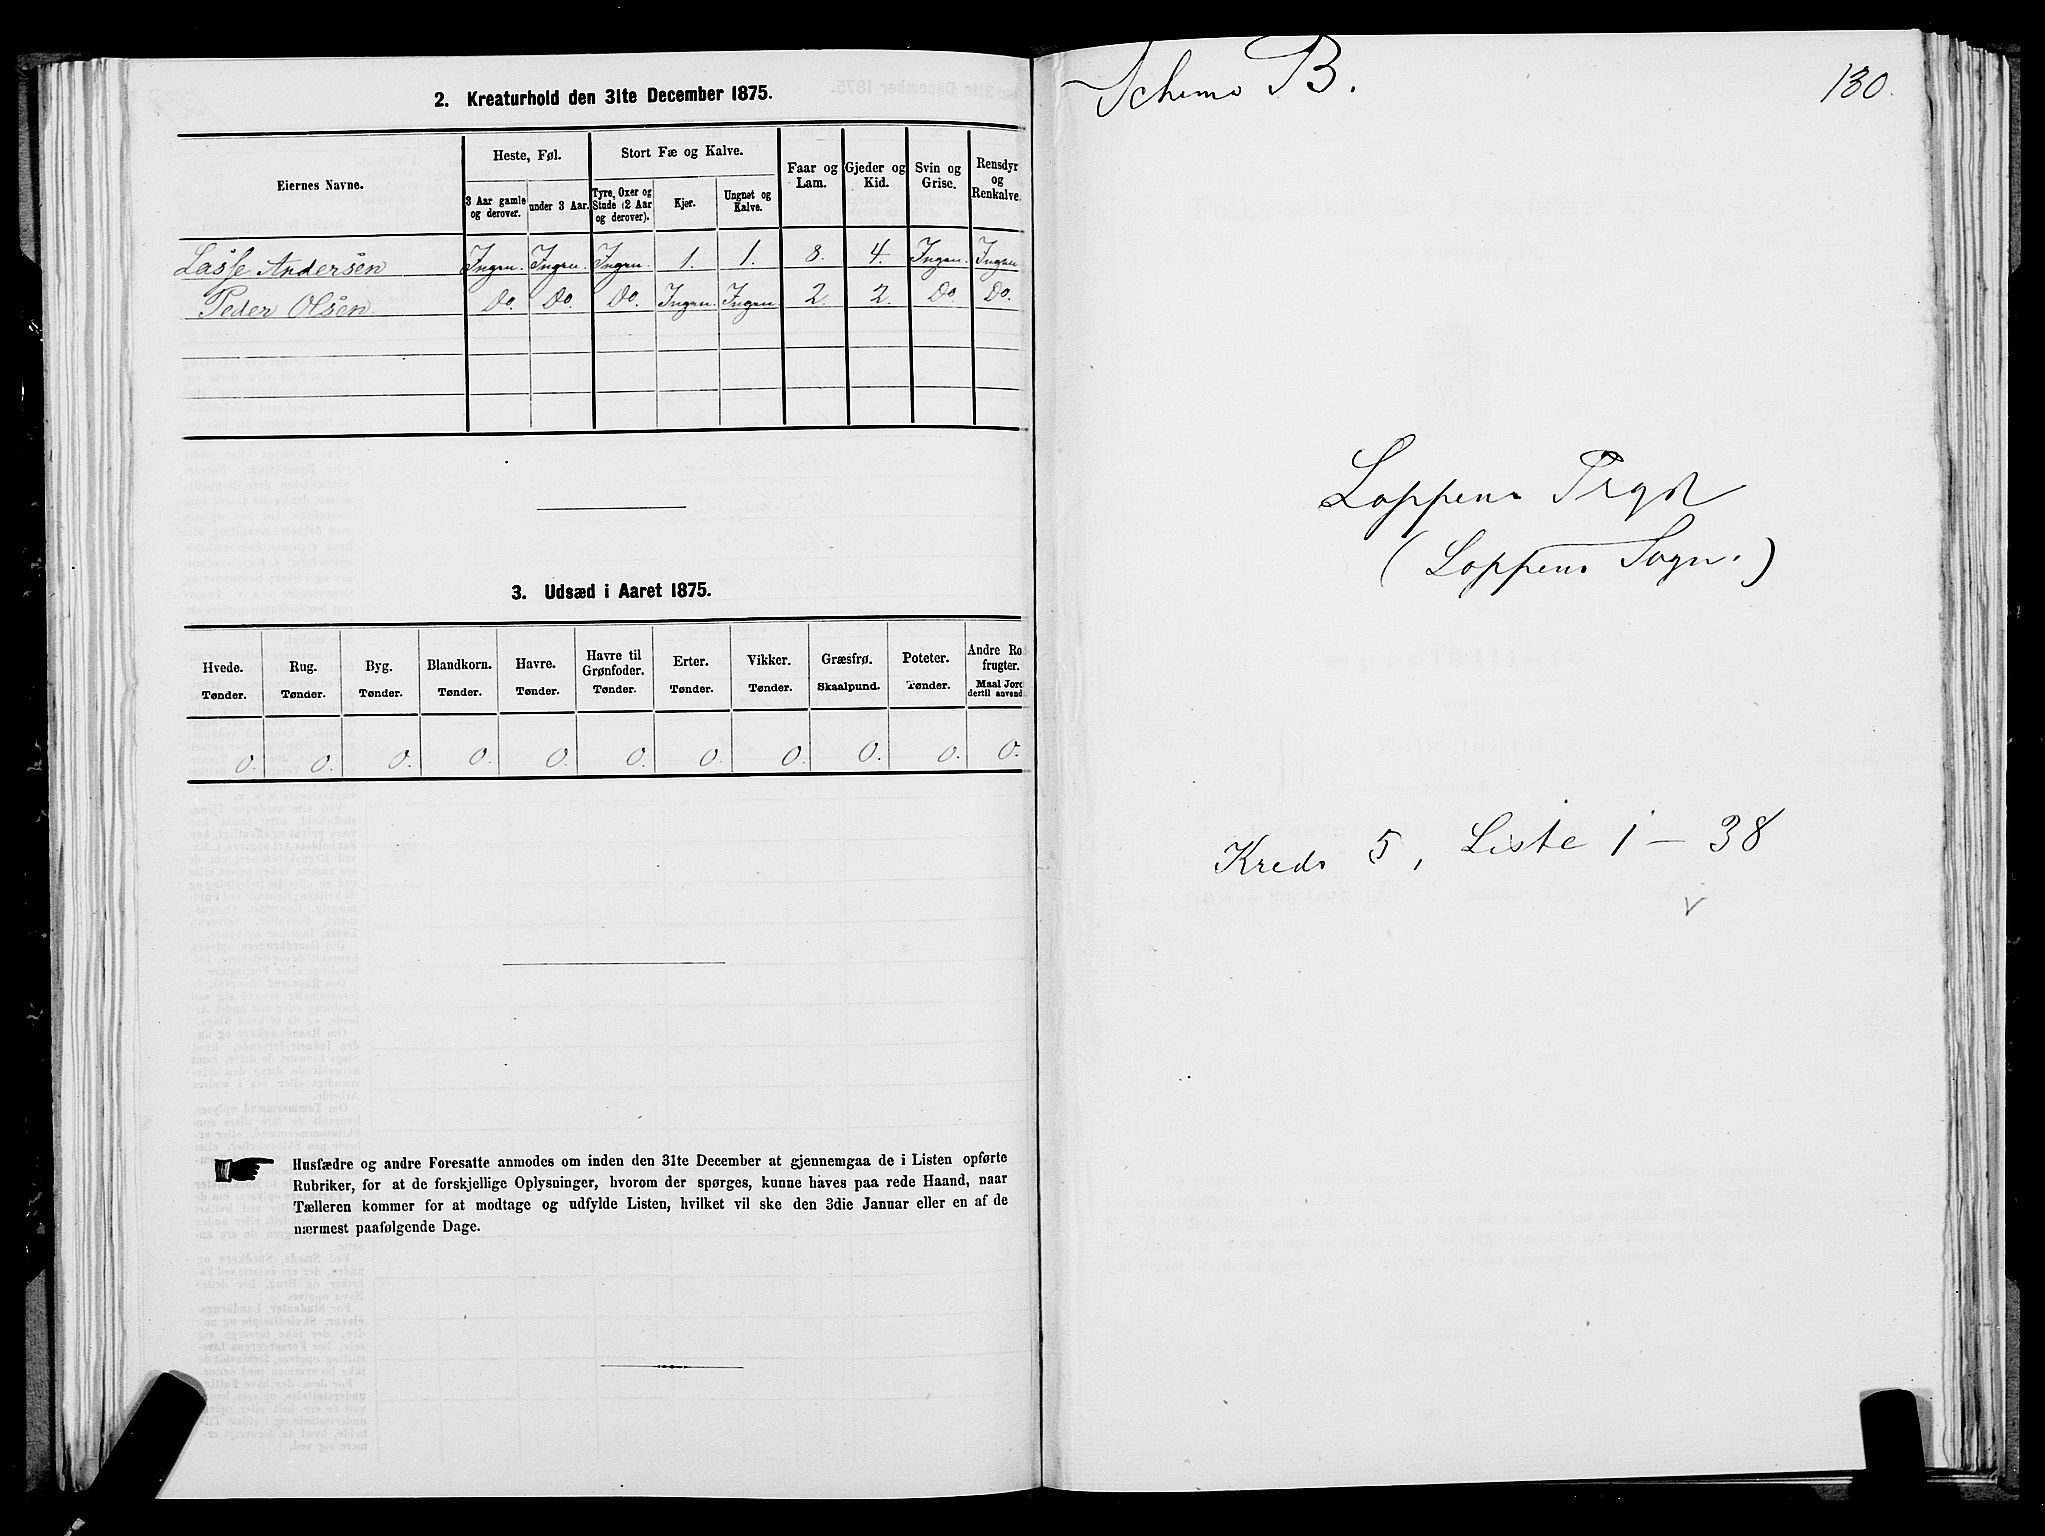 2. Kreaturhold den 31te December 1875.
Eiernes Navne. Heste, Føl. Stort Fæ og Kalve. Faar og Lam. Gjeder og Kid. Svin og Grise. Rensdyr og Renkalve.
3 Aar gamle og derover. under 3 Aar. Tyre, Oxer og Stude (2 Aar og derover). Kjør. Ungnøt og Kalve.
Lasse Andersen Ingen. Ingen. Ingen. 1. 1. 8. 4. Ingen. Ingen
Peder Olsen Do. Do. Do. Ingen. Ingen 2. 2. Do. Do.
3. Udsæd i Aaret 1875.
Hvede. Rug. Byg. Blandkorn. Havre. Havre til Grønfoder. Erter. Vikker. Græsfrø. Poteter. Andre Ro frugter.
Tønder. Tønder. Tønder. Tønder. Tønder. Tønder. Tønder. Tønder. Skaalpund. Tønder. Maal Jord dertil anvend
0. 0. 0. 0. 0. 0. 0. 0. 0. 0. 0.
Husfædre og andre Foresatte anmodes om inden den 31te December at gjennemgaa de i Listen opførte
Rubriker, for at de forskjellige Oplysninger, hvorom der spørges, kunne haves paa rede Haand, naar
Tælleren kommer for at modtage og udfylde Listen, hvilket vil ske den 3die Januar eller en af de
nærmest paafølgende Dage.
Schema B.
130.
Loppens Prgd
(Loppens Sogn.)
Kreds 5, Liste 1 - 38